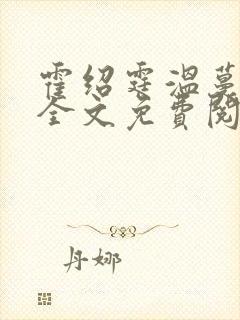 霍绍霆温蔓
全文免费阅
丹娜